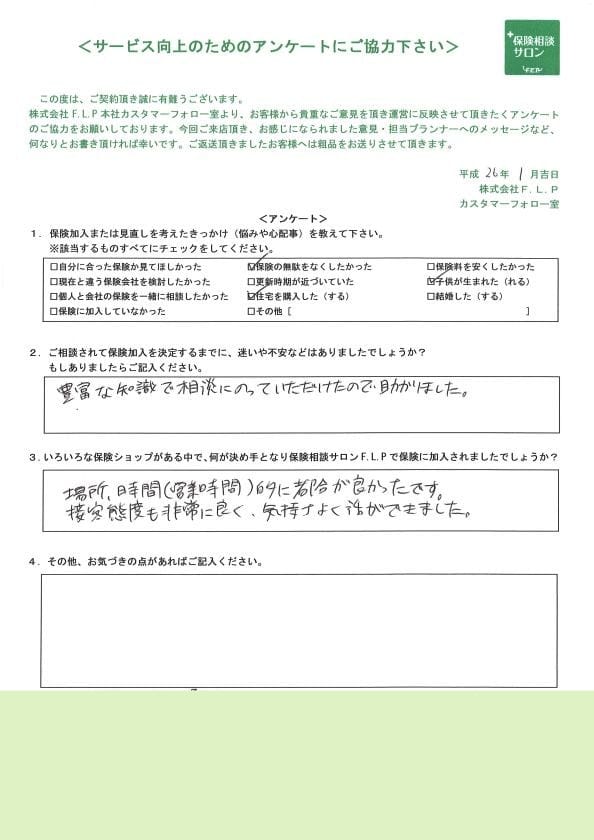 ＜サービス向上のためのアンケートにご協力下さい＞
保険相談
サロン
F.L.P
この度は、ご契約頂き誠に有難うございます。
株式会社Ｆ.Ｌ.Ｐ本社カスタマーフォロー室より、お客様から貴重なご意見を頂き運営に反映させて頂きたくアンケート
のご協力をお願いしております。今回ご来店頂き、お感じになられました意見・担当プランナーへのメッセージなど、
何なりとお書き頂ければ幸いです。ご返送頂きましたお客様へは粗品をお送りさせて頂きます。
平成 26年 1月吉日
株式会社Ｆ.Ｌ.Ｐ
カスタマーフォロー室
＜アンケート＞
１．保険加入または見直しを考えたきっかけ（悩みや心配事）を教えて下さい。
※該当するものすべてにチェックをしてください。
□自分に合った保険か見てほしかった ☑保険の無駄をなくしたかった □保険料を安くしたかった
□現在と違う保険会社を検討したかった □更新時期が近づいていた ☑子供が生まれた（れる）
□個人と会社の保険を一緒に相談したかった ☑住宅を購入した（する） □結婚した（する）
□保険に加入していなかった □その他［ ］
２．ご相談されて保険加入を決定するまでに、迷いや不安などはありましたでしょうか？
もしありましたらご記入ください。
豊富な知識で相談にのっていただけたので助かりました。
３.いろいろな保険ショップがある中で、何が決め手となり保険相談サロンＦ.Ｌ.Ｐで保険に加入されましたでしょうか？
場所、日時間(営業時間)的に都合が良かったです。
接客態度も非常に良く、気持ちよく話ができました。
４．その他、お気づきの点があればご記入ください。